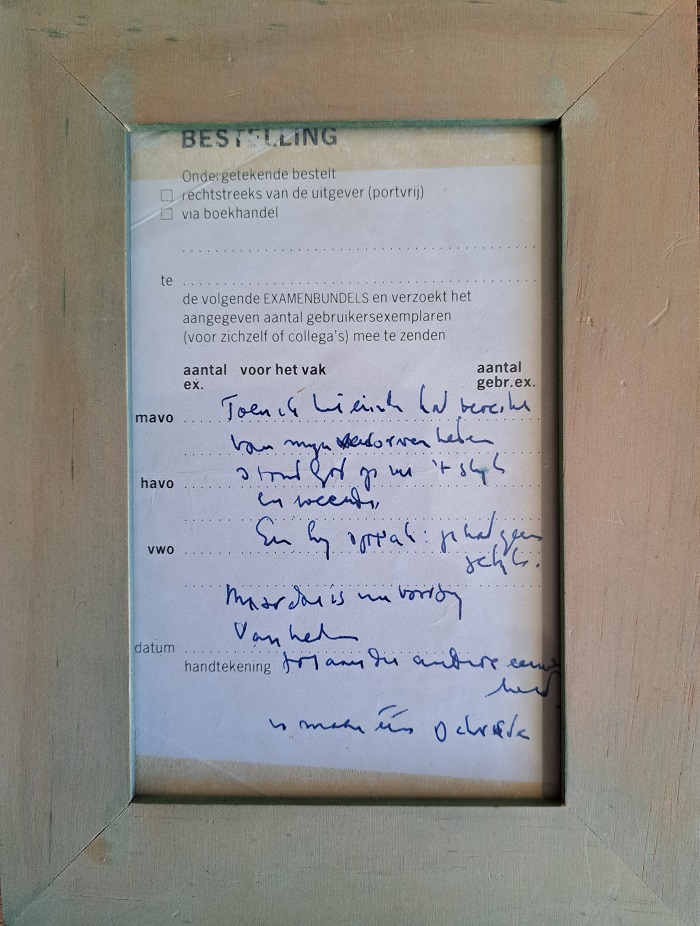 BESTELLING
Ondergetekende bestelt
rechtstreeks van de uitgever (portvrij)
via boekhandel
te
de volgende EXAMENBUNDELS en verzoekt het
aangegeven aantal gebruikersexemplaren
(voor zichzelf of collega's) mee te zenden
aantal voor het vak aantal
ex. gebr.ex.
mavo Toen ik had
van mijn
havo stond God op
en weende,
vwo En hij sprak: geen
Maar dat is nu voorbij
Van heden
datum
handtekening tot aan de andere eeuw
heid
is maar één